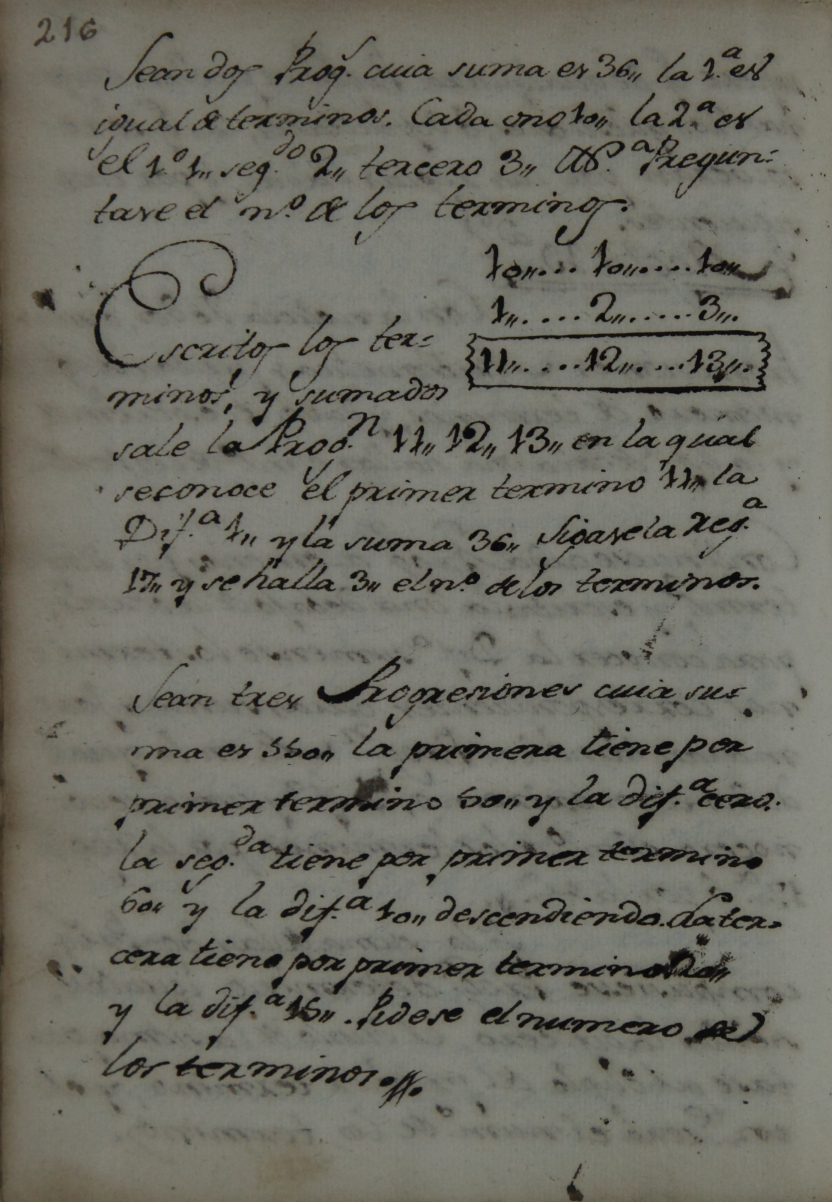 216
Sean dos Prog.s cuia suma es 36,, la 1.a es
igual de terminos. Cada uno 10,, la 2.a es
el 1.o 1,, seg.do 2,, tercero 3,, &.a Pregun:
tase el n.o de los terminos.
10,,... 10,,....10,,
1,,.... 2,,.....3,,.
Escritos los ter=
11,,....12,,....13,,.
minos, y sumados
sale la Prog.n 11,, 12,, 13,, en la qual
seconoce el primer termino 11,, la
Dif.a 1,, y la suma 36,, Sigase la reg.a
17,, y se halla 3,, el n.o de los terminos.
Sean tres Progresiones cuia su=
ma es 550,, la primera tiene por
primer termino 50,, y la dif.a cero.
la seg.da tiene por primer termino
60,, y la dif.a 10,, descendiendo. La ter=
cera tiene por primer termino
y la dif.a 15,,. Pidese el numero de
los terminos.